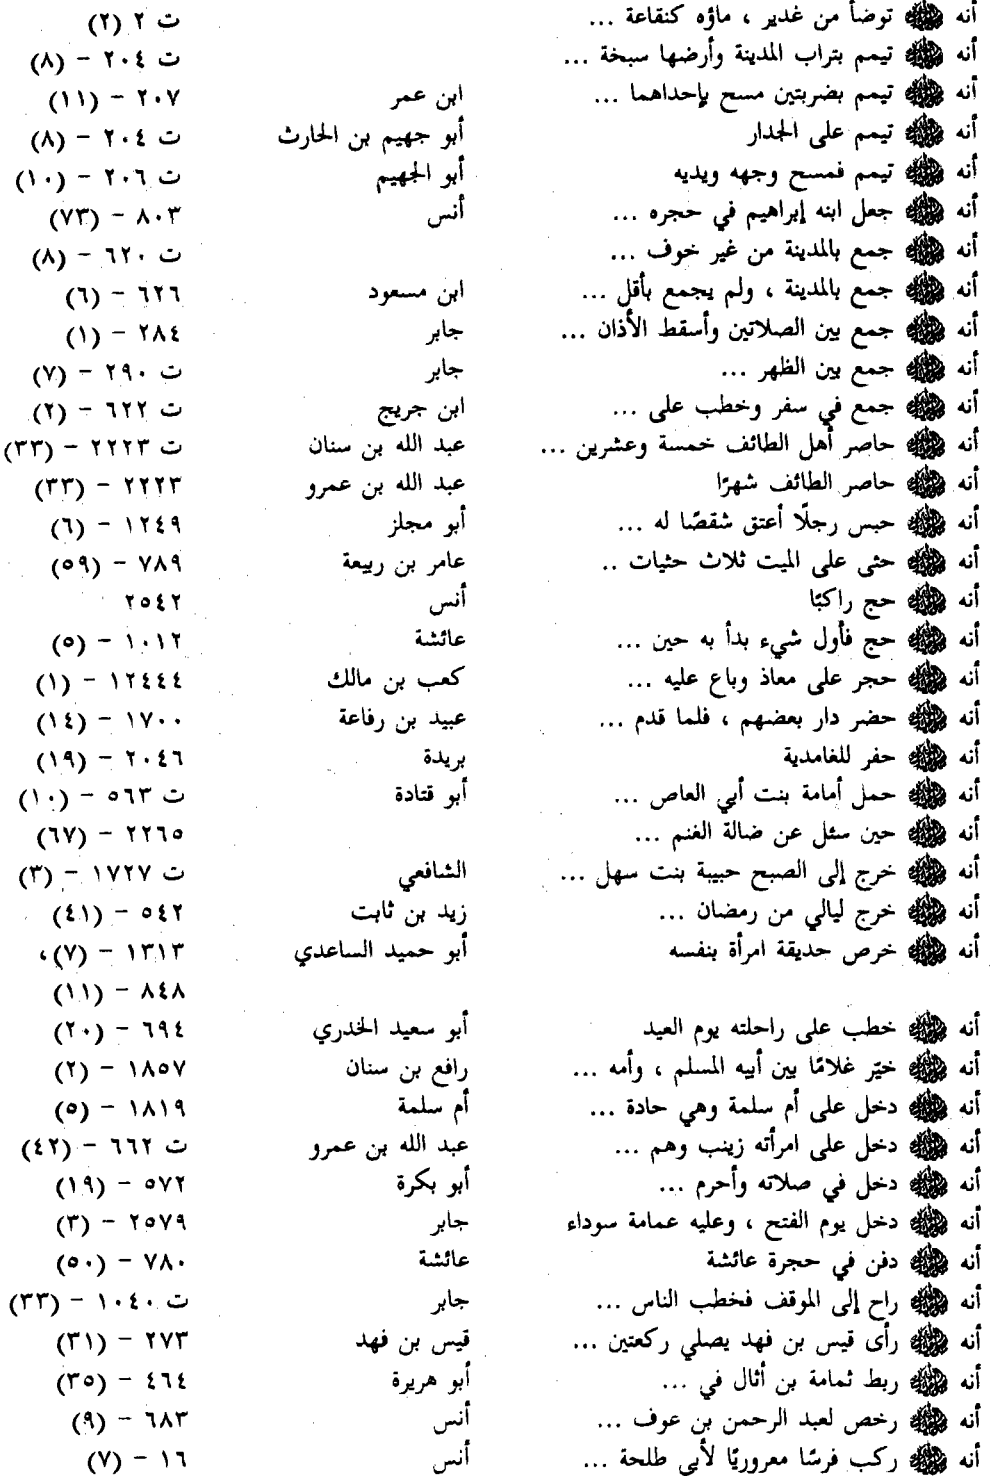 أنه ﷺ توضأ من غدير ، ماؤه كنقاعة ... ت ٢ (٢)
أنه ﷺ تيمم بتراب المدينة وأرضها سبخة ... ت ٢٠٤ - (٨)
أنه ﷺ تيمم بضربتين مسح بإحداهما ... ابن عمر ٢٠٧ - (١١)
أنه ﷺ تيمم على الجدار أبو جهيم بن الحارث ت ٢٠٤ - (٨)
أنه ﷺ تيمم فمسح وجهه ويديه أبو الجهيم ت ٢٠٦ - (١٠)
أنه ﷺ جعل ابنه إبراهيم في حجره ... أنس ٨٠٣ - (٧٣)
أنه ﷺ جمع بالمدينة من غير خوف ... ت ٦٢٠ - (٨)
أنه ﷺ جمع بالمدينة ، ولم يجمع بأقل ... ابن مسعود ٦٢٦ - (٦)
أنه ﷺ جمع بين الصلاتين وأسقط الأذان ... جابر ٢٨٤ - (١)
أنه ﷺ جمع بين الظهر ... جابر ت ٢٩٠ - (٧)
أنه ﷺ جمع في سفر وخطب على ... ابن جريج ت ٦٢٢ - (٢)
أنه ﷺ حاصر أهل الطائف خمسة وعشرين ... عبد الله بن سنان ت ٢٢٢٣ - (٣٣)
أنه ﷺ حاصر الطائف شهرًا عبد الله بن عمرو ٢٢٢٣ - (٣٣)
أنه ﷺ حبس رجلًا أعتق شقصًا له ... أبو مجلز ١٢٤٩ - (٦)
أنه ﷺ حثى على الميت ثلاث حثيات .. عامر بن ربيعة ٧٨٩ - (٥٩)
أنه ﷺ حج راكبًا أنس ٢٥٤٢
أنه ﷺ حج فأول شيء بدأ به حين ... عائشة ١٠١٢ - (٥)
أنه ﷺ حجر على معاذ وباع عليه ... كعب بن مالك ١٢٤٤٤ - (١)
أنه ﷺ حضر دار بعضهم ، فلما قدم ... عبيد بن رفاعة ١٧٠٠ - (١٤)
أنه ﷺ حفر للغامدية بريدة ٢٠٤٦ - (١٩)
أنه ﷺ حمل أمامة بنت أبي العاص ... أبو قتادة ت ٥٦٣ - (١٠)
أنه ﷺ حين سئل عن ضالة الغنم ... ٢٢٦٥ - (٦٧)
أنه ﷺ خرج إلى الصبح حبيبة بنت سهل ... الشافعي ت ١٧٢٧ - (٣)
أنه ﷺ خرج ليالي من رمضان ... زيد بن ثابت ٥٤٢ - (٤١)
أنه ﷺ خرص حديقة امرأة بنفسه أبو حميد الساعدي ١٣١٣ - (٧)،
٨٤٨ - (١١)
أنه ﷺ خطب على راحلته يوم العيد أبو سعيد الخدري ٦٩٤ - (٢٠)
أنه ﷺ خيّر غلامًا بين أبيه المسلم ، وأمه ... رافع بن سنان ١٨٥٧ - (٢)
أنه ﷺ دخل على أم سلمة وهي حادة ... أم سلمة ١٨١٩ - (٥)
أنه ﷺ دخل على امرأته زينب وهم ... عبد الله بن عمرو ت ٦٦٢ - (٤٢)
أنه ﷺ دخل في صلاته وأحرم ... أبو بكرة ٥٧٢ - (١٩)
أنه ﷺ دخل يوم الفتح ، وعليه عمامة سوداء جابر ٢٥٧٩ - (٣)
أنه ﷺ دفن في حجرة عائشة عائشة ٧٨٠ - (٥٠)
أنه ﷺ راح إلى الموقف فخطب الناس ... جابر ت ١٠٤٠ - (٣٣)
أنه ﷺ رأى قيس بن فهد يصلي ركعتين ... قيس بن فهد ٢٧٣ - (٣١)
أنه ﷺ ربط ثمامة بن أثال في ... أبو هريرة ٤٦٤ - (٣٥)
أنه ﷺ رخص لعبد الرحمن بن عوف ... أنس ٦٨٣ - (٩)
أنه ﷺ ركب فرسًا معروريًا لأبي طلحة ... أنس ١٦ - (٧)